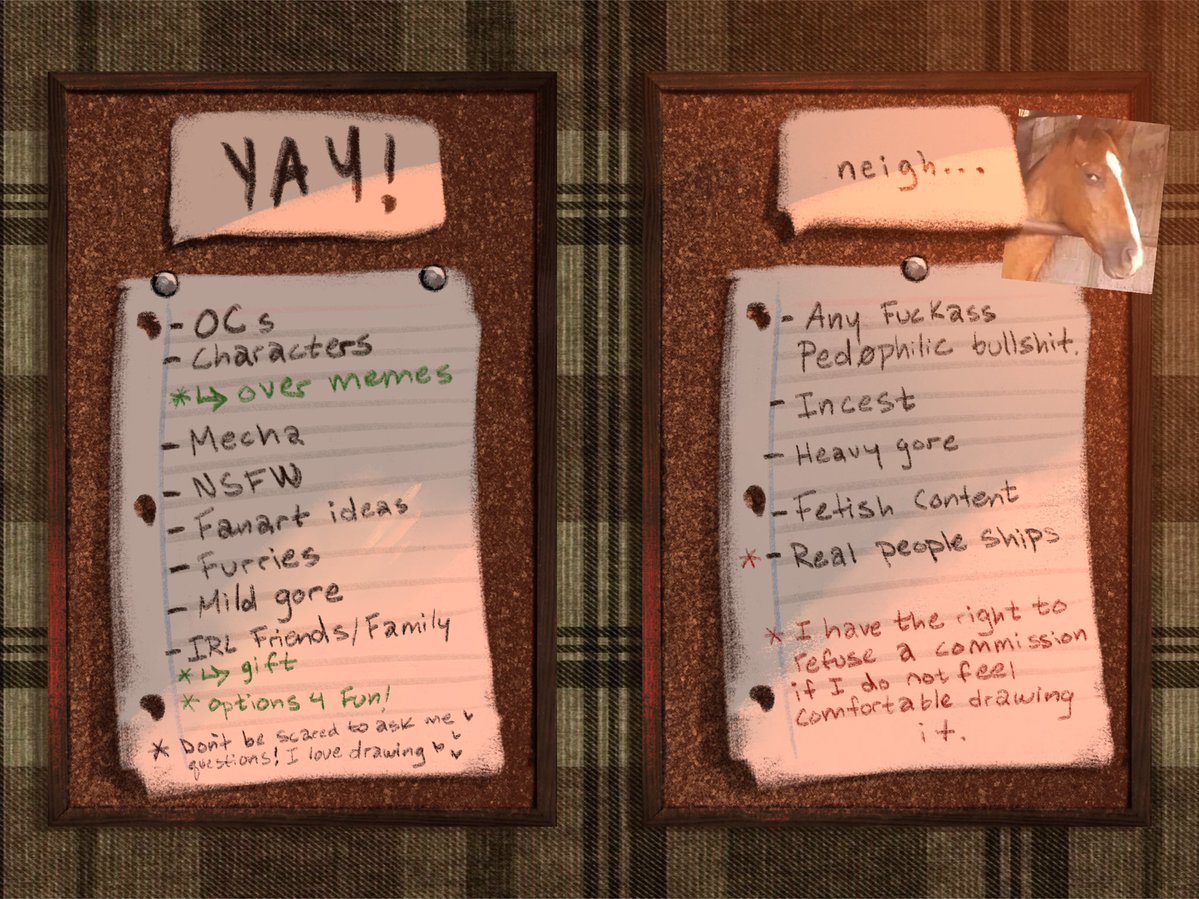 YAY!
- OCs
- Characters
*↳ over memes
- Mecha
- NSFW
- Fanart ideas
- Furries
- Mild gore
- IRL Friends/Family
*↳ gift
* options 4 Fun!
* Don't be scared to ask me
questions! I love drawing
neigh...
- Any Fuckass
Pedøphilic bullshit.
- Incest
- Heavy gore
- Fetish Content
* - Real people ships
* I have the right to
refuse a commission
if I do not feel
comfortable drawing
it.